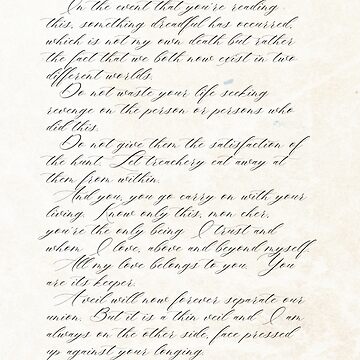 In the event that you're reading
this, something dreadful has occurred,
which is not my own death but rather
the fact that we both now exist in two
different worlds.
Do not waste your life seeking
revenge on the person or persons who
did this.
Do not give them the satisfaction of
the hunt. Let treachery eat away at
them from within.
And you, you go carry on with your
living. Know only this, mon cher,
you're the only being I trust and
whom I love, above and beyond myself.
All my love belongs to you. You
are its keeper.
A veil will now forever separate our
union. But it is a thin veil and I am
always on the other side, face pressed
up against your longing.